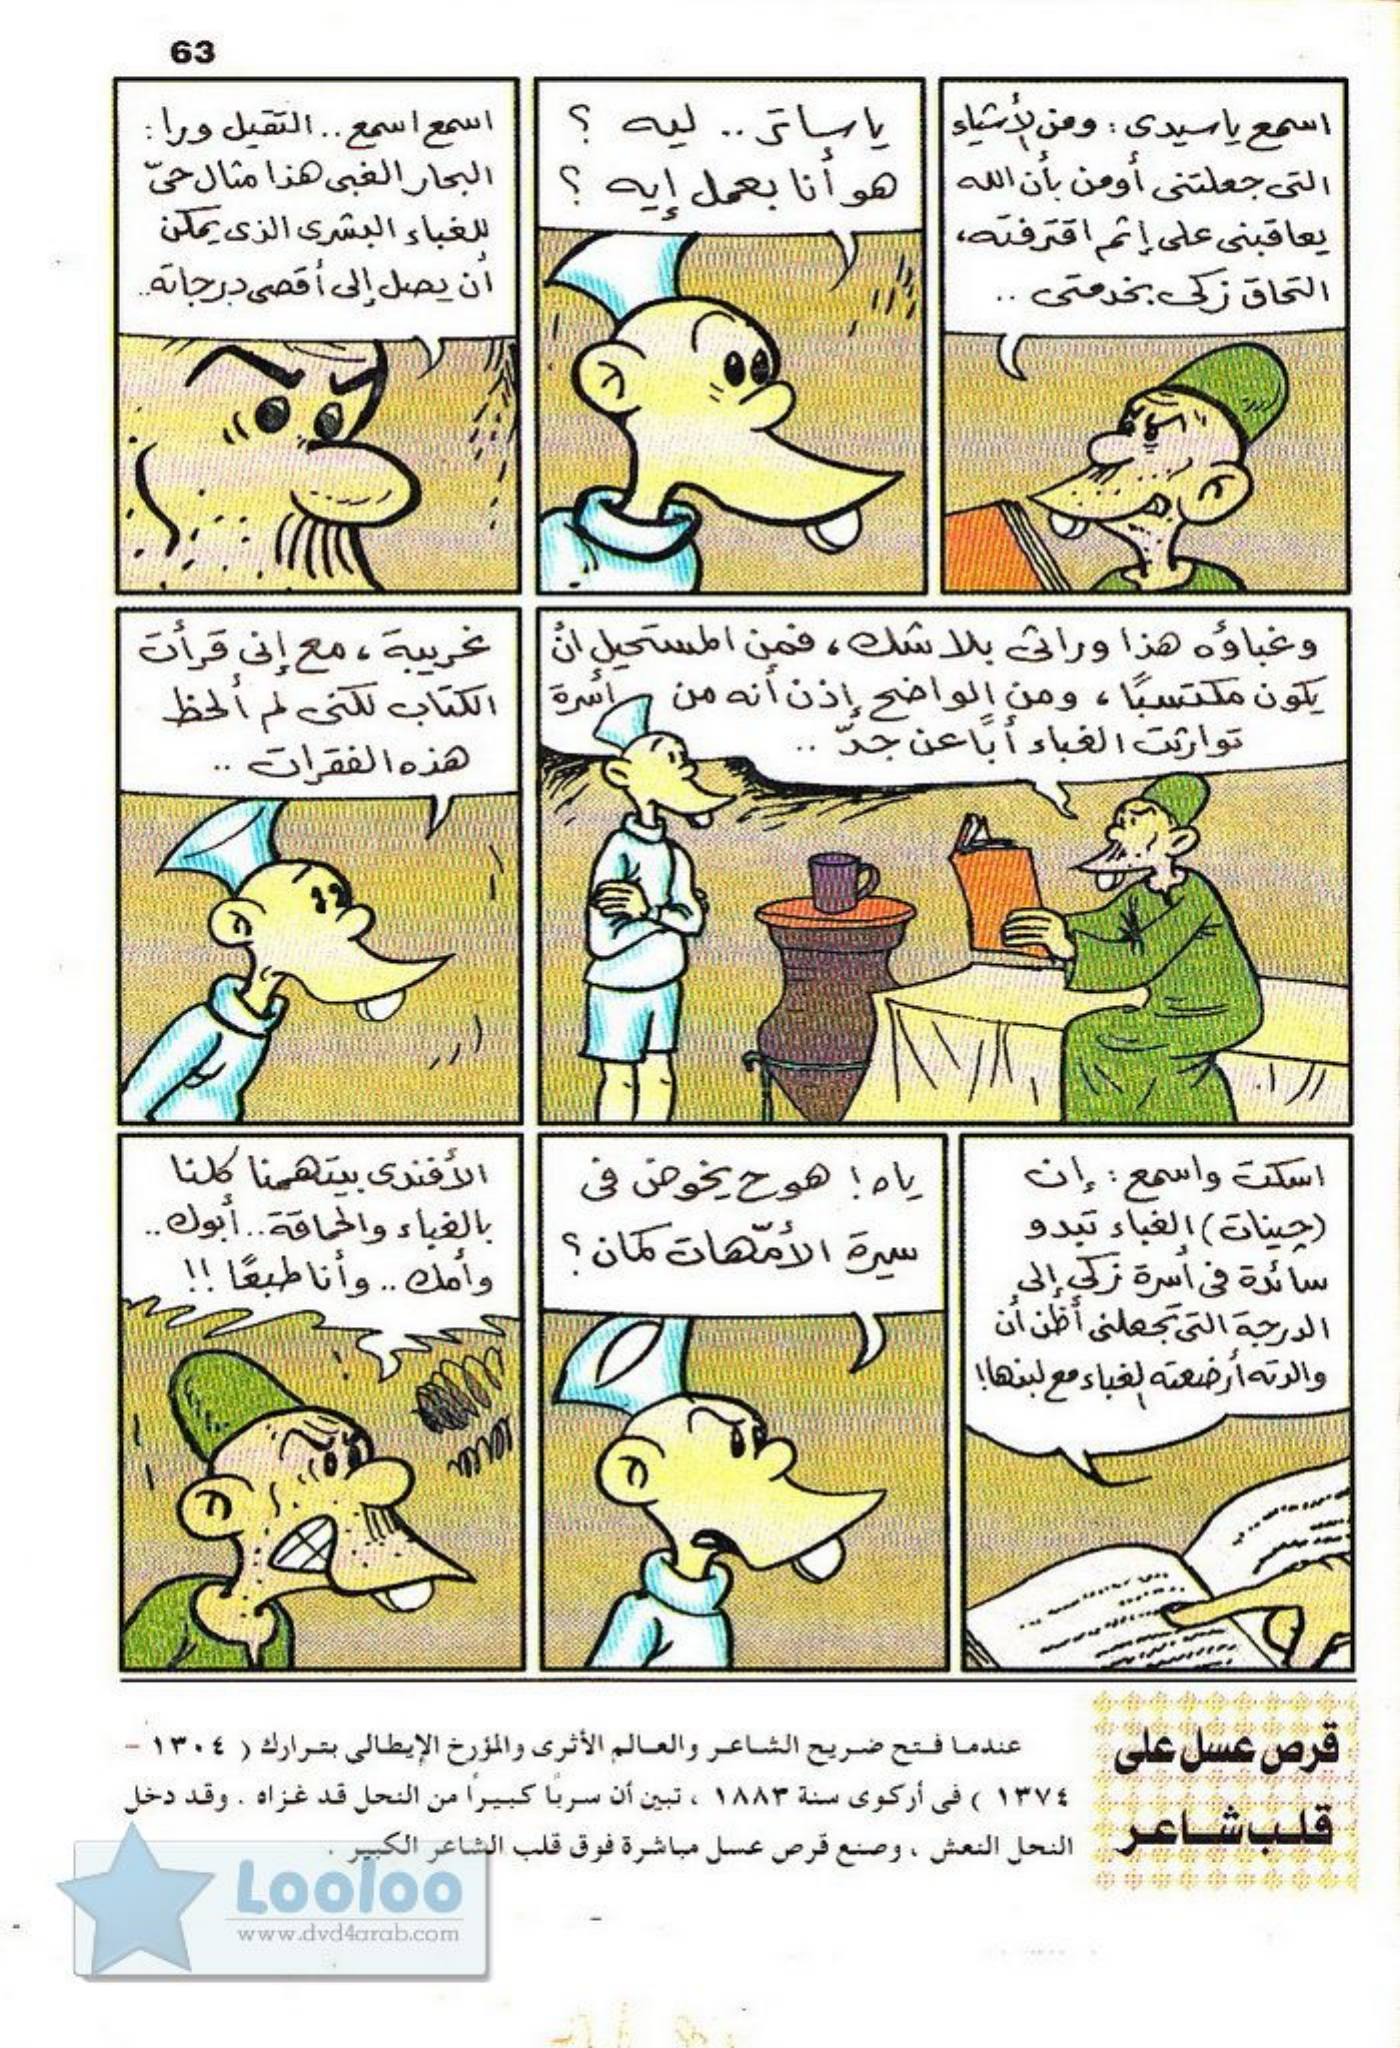 63
اسمع ياسيدى : ومن الأشياء
التى جعلتنى أومن بأن الله
يعاقبنى على إثم اقترفته،
التحاق زكى بخدمتى ..
ياساتر .. ليه ؟
هو أنا بعمل إيه ؟
اسمع اسمع .. التقيل ورا :
البحار الغبى هذا مثال حىّ
للغباء البشرى الذى يمكن
أن يصل إلى أقصى درجاته..
وغباؤه هذا وراثى بلا شك ، فمن المستحيل أن
يكون مكتسبًا ، ومن الواضح إذن أنه من أسرة
توارثت الغباء أبًا عن جدّ ..
غريبة ، مع إنى قرأت
الكتاب لكنى لم ألحظ
هذه الفقرات ..
اسكت واسمع : إن
(جينات) الغباء تبدو
سائدة فى أسرة زكى إلى
الدرجة التى تجعلنى أظن أن
والدته أرضعته الغباء مع لبنها!
ياه ! هو ح يخوض فى
سيرة الأمّهات كمان ؟
الأفندى بيتهمنا كلنا
بالغباء والحماقة .. أبوك ..
وأمك .. وأنا طبعًا !!
قرص عسل على
قلب شاعر
عندما فتح ضريح الشاعر والعالم الأثرى والمؤرخ الإيطالى بترارك ( ١٣٠٤ -
١٣٧٤ ) فى أركوى سنة ١٨٨٣ ، تبين أن سربًا كبيرًا من النحل قد غزاه . وقد دخل
النحل النعش ، وصنع قرص عسل مباشرة فوق قلب الشاعر الكبير .
Looloo
www.dvd4arab.com